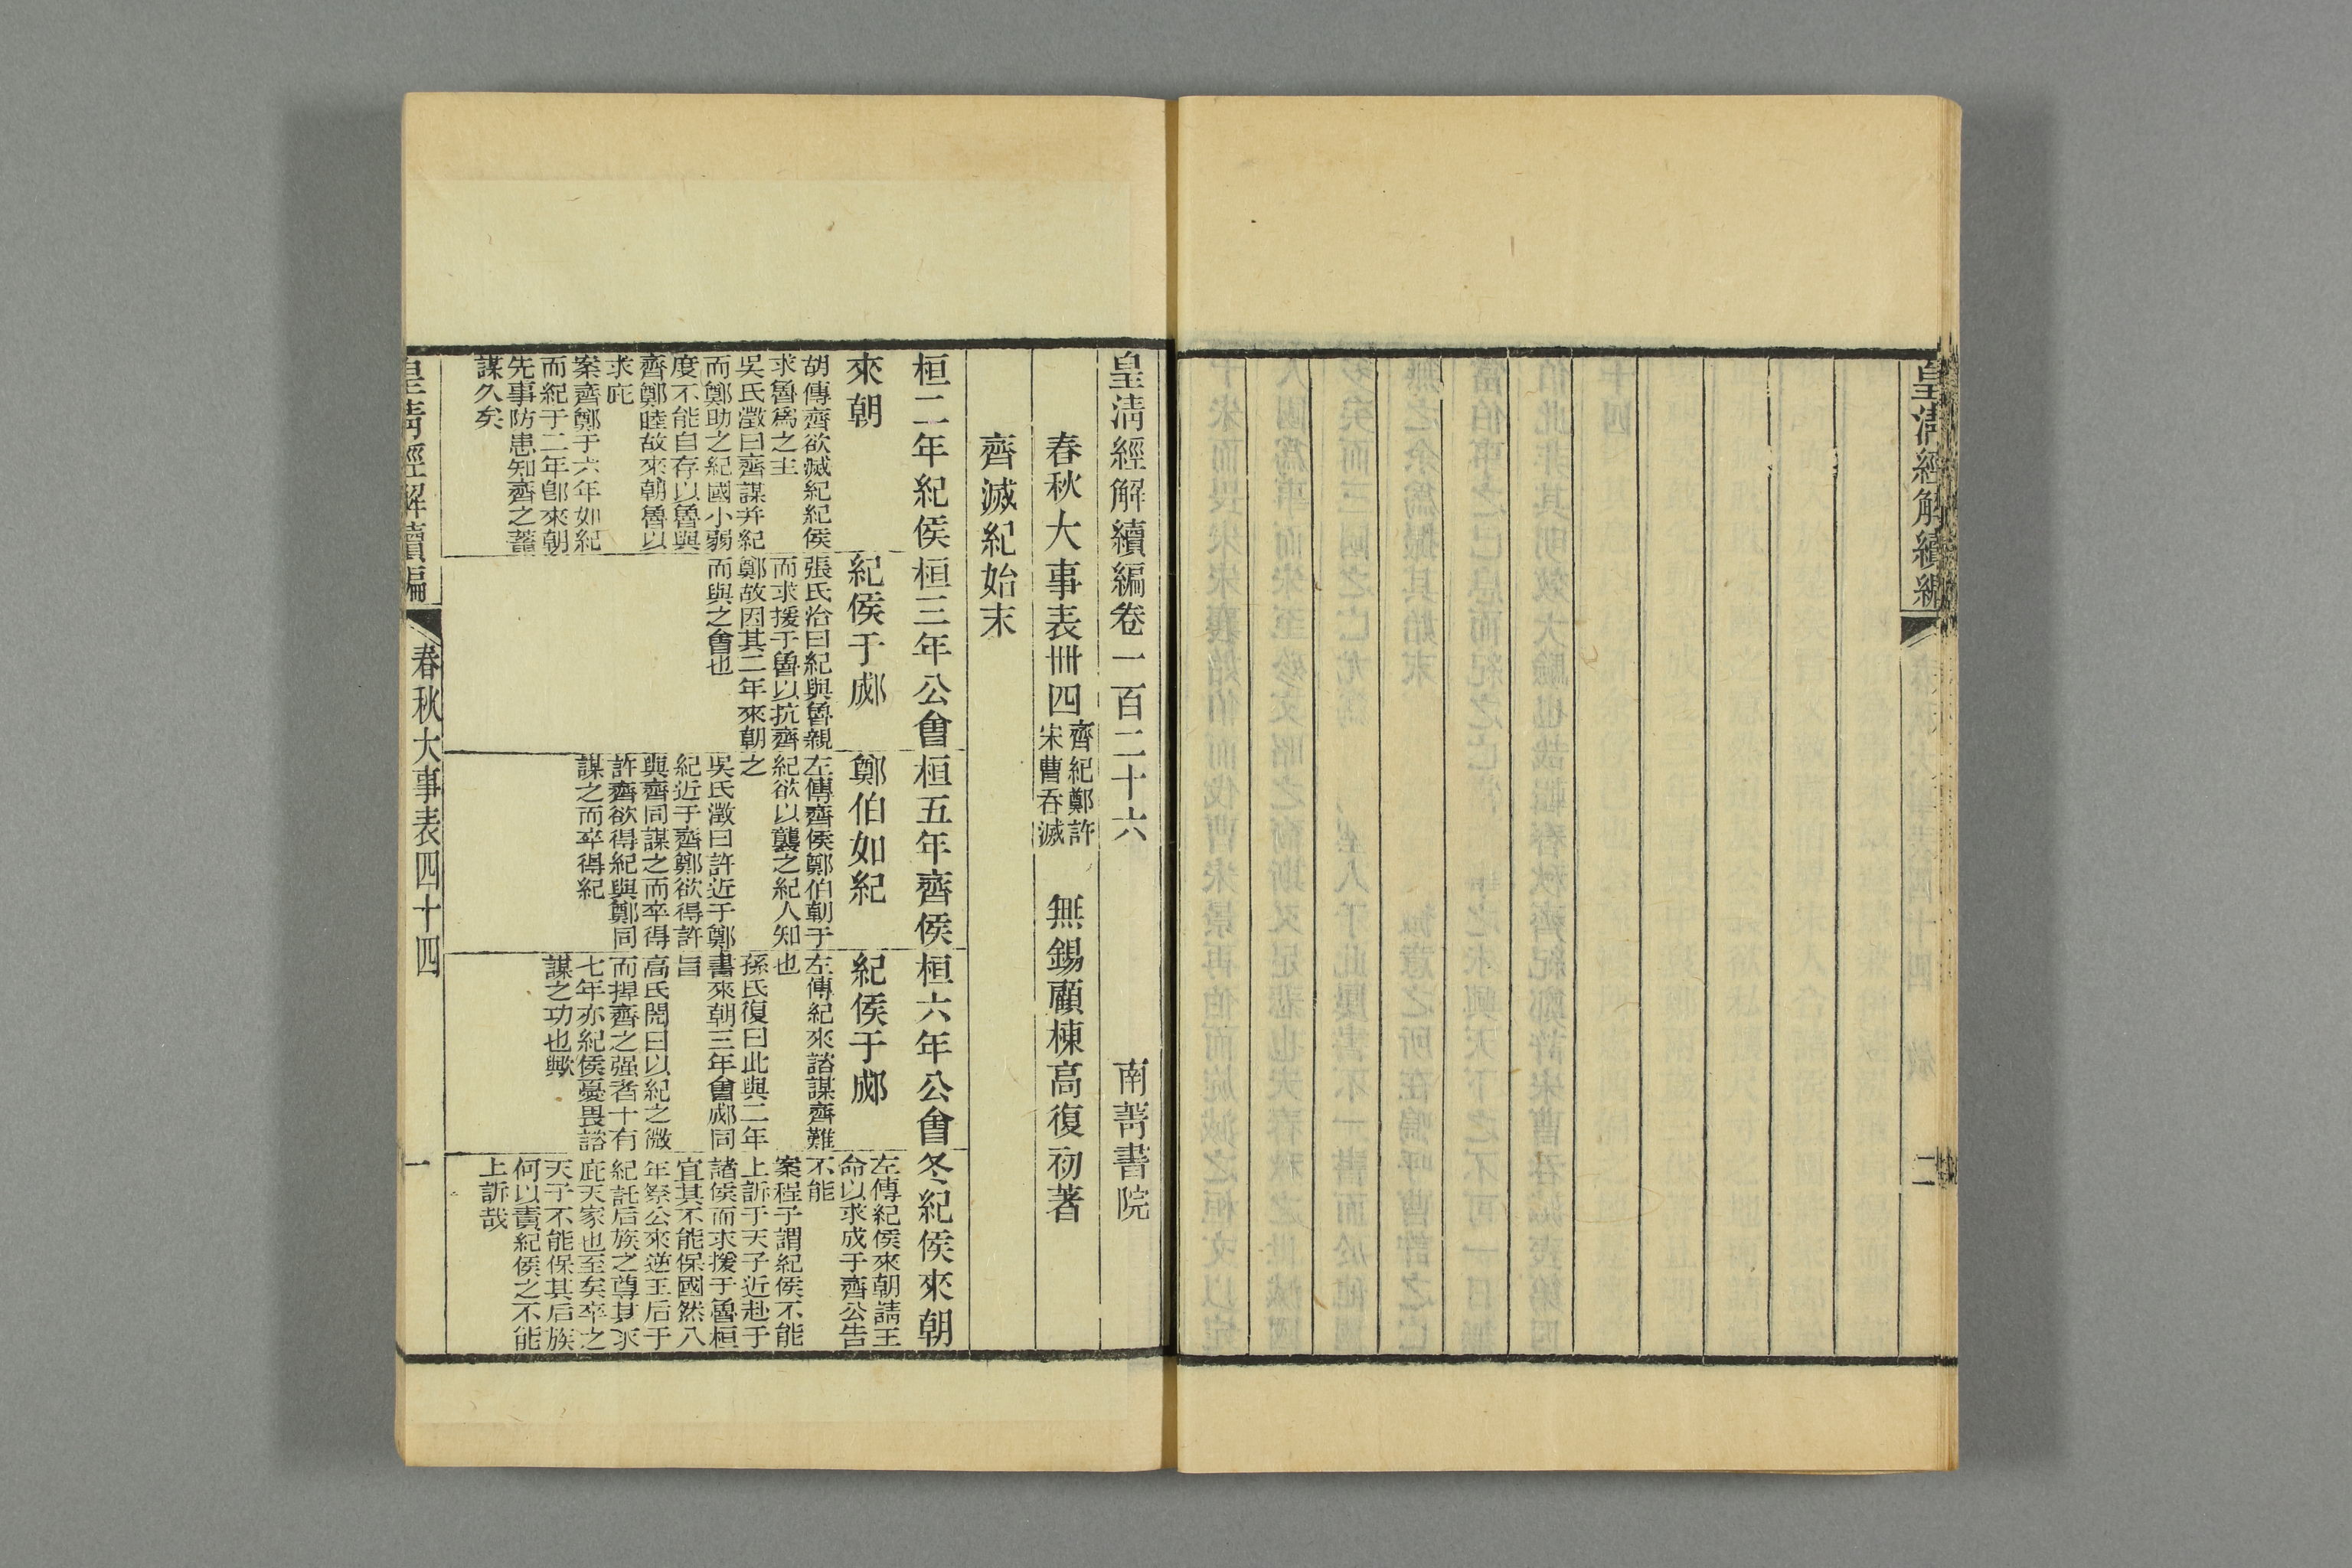 皇淸經解續編
二
皇淸經解續編卷一百二十六
南菁書院
春秋大事表卌四
齊紀鄭許
宋曹吞滅
無錫顧棟高復初著
齊滅紀始末
桓二年紀侯
來朝
胡傳齊欲滅紀紀侯
求魯爲之主
吳氏澂曰齊謀并紀
而鄭助之紀國小弱
度不能自存以魯與
齊鄭睦故來朝魯以
求庇
案齊鄭于六年如紀
而紀于二年卽來朝
先事防患知齊之蓄
謀久矣
桓三年公會
紀侯于郕
張氏洽曰紀與魯親
而求援于魯以抗齊
鄭故因其二年來朝
而與之會也
桓五年齊侯
鄭伯如紀
左傳齊侯鄭伯朝于
紀欲以襲之紀人知
之
吳氏澂曰許近于鄭
紀近于齊鄭欲得許
與齊同謀之而卒得
許齊欲得紀與鄭同
謀之而卒得紀
桓六年公會
紀侯于郕
左傳紀來諮謀齊難
也
孫氏復曰此與二年
書來朝三年會郕同
旨
高氏閌曰以紀之微
而捍齊之强者十有
七年亦紀侯憂畏諮
謀之功也歟
冬紀侯來朝
左傳紀侯來朝請王
命以求成于齊公告
不能
案程子謂紀侯不能
上訴于天子近赴于
諸侯而求援于魯桓
宜其不能保國然八
年祭公來逆王后于
紀託后族之尊其求
庇天家也至矣卒之
天子不能保其后族
何以責紀侯之不能
上訴哉
皇淸經解續編
春秋大事表四十四
一